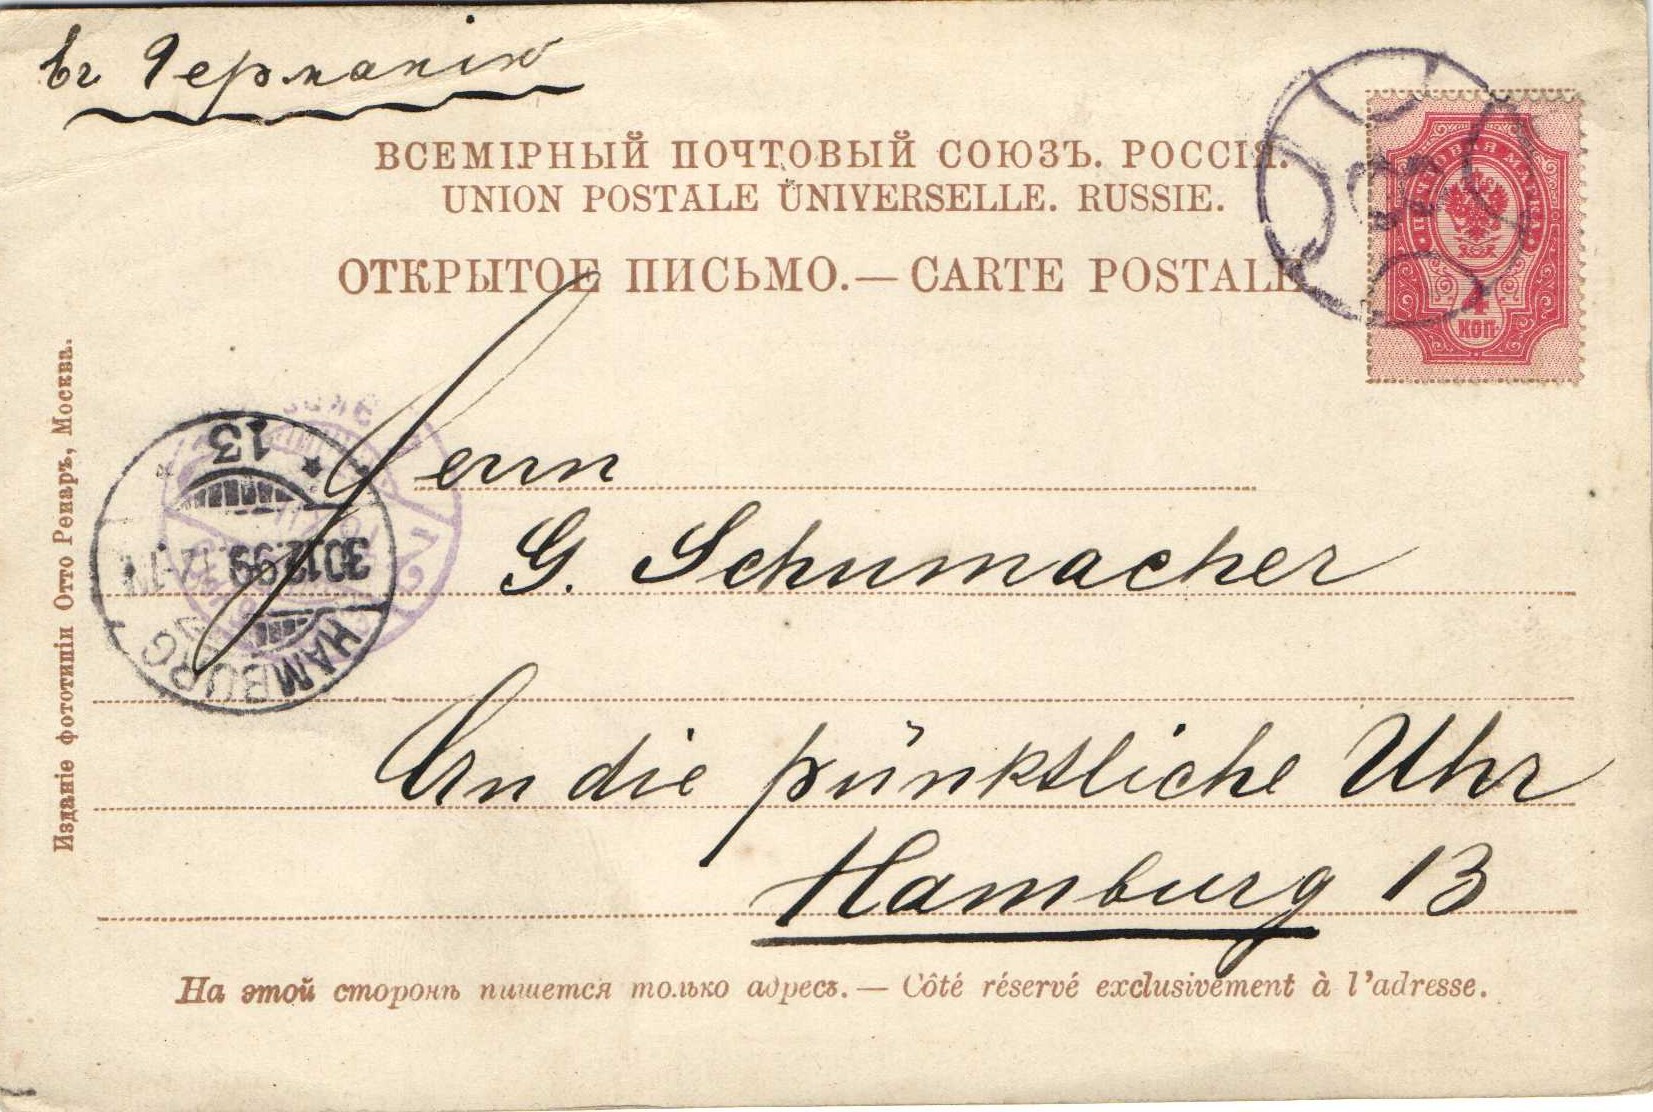 въ Германію
ВСЕМІРНЫЙ ПОЧТОВЫЙ СОЮЗЪ. РОССІЯ.
UNION POSTALE UNIVERSELLE. RUSSIE.
ОТКРЫТОЕ ПИСЬМО.— CARTE POSTALE
ПОЧТОВАЯ МАРКА
4
КОП.
Изданіе фототипіи Отто Ренаръ, Москва.
13
30.12.99
HAMBURG
Herrn
G. Schumacher
An die pünktliche Uhr
Hamburg 13
На этой сторонѣ пишется только адресъ.— Côté réservé exclusivement à l'adresse.